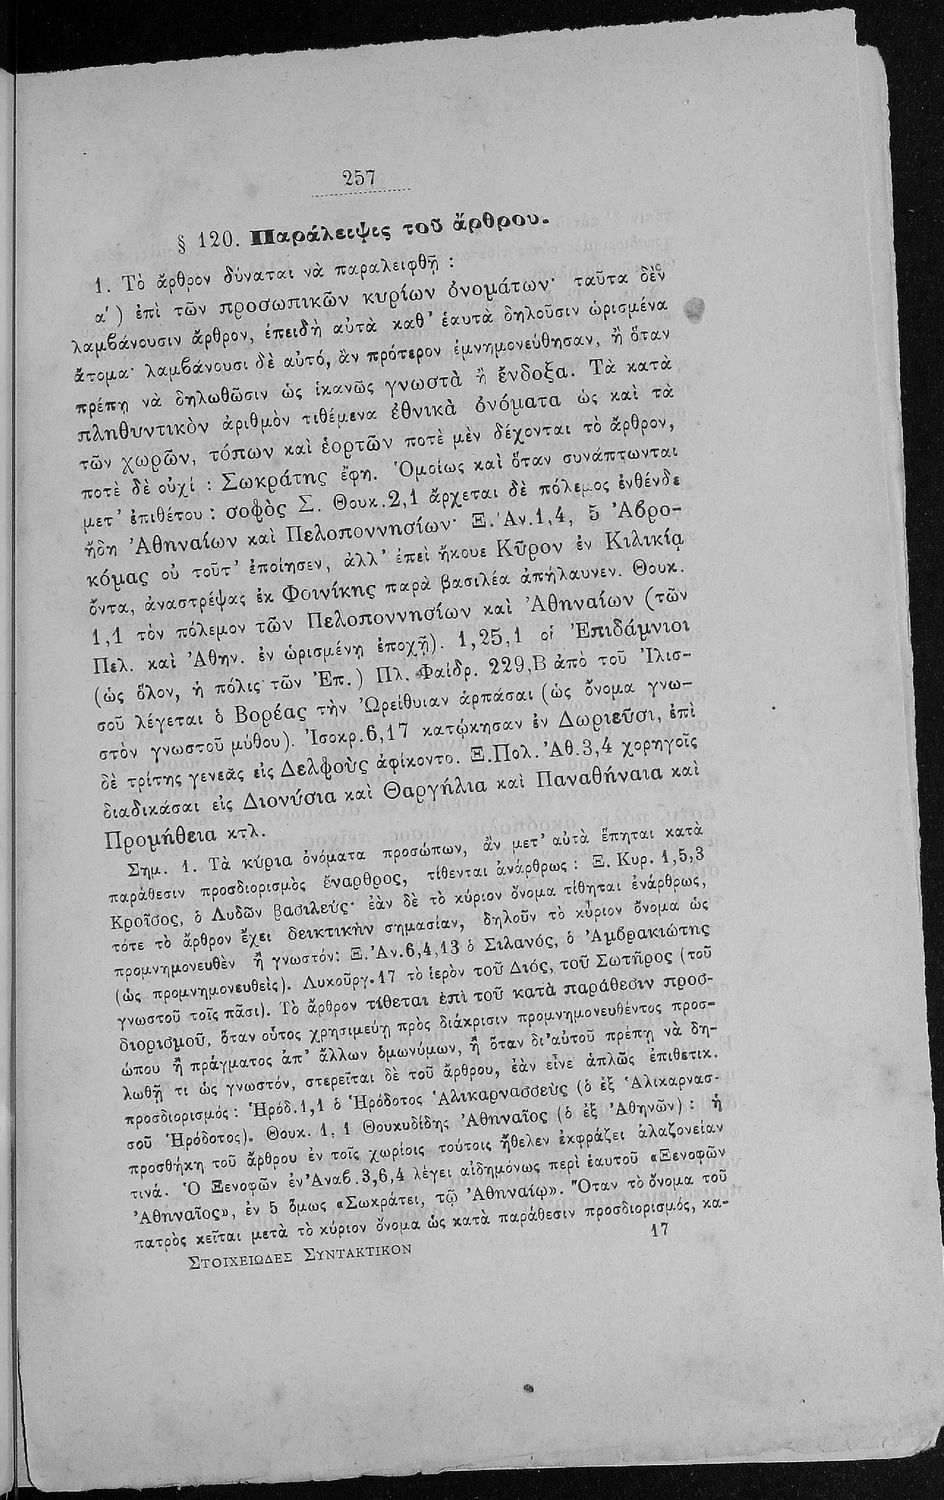 257
§ 120. Παράλειψις τοῦ ἄρθρου.
1. Τὸ ἄρθρον δύναται νὰ παραλειφθῇ :
α′) ἐπὶ τῶν προσωπικῶν κυρίων ὀνομάτων· ταῦτα δὲν
λαμβάνουσιν ἄρθρον, ἐπειδὴ αὐτὰ καθ’ ἑαυτὰ δηλοῦσιν ὡρισμένα
ἄτομα· λαμβάνουσι δὲ αὐτό, ἂν πρότερον ἐμνημονεύθησαν, ἢ ὅταν
πρέπῃ νὰ δηλωθῶσιν ὡς ἱκανῶς γνωστὰ ἢ ἔνδοξα. Τὰ κατὰ
πληθυντικὸν ἀριθμὸν τιθέμενα ἐθνικὰ ὀνόματα ὡς καὶ τὰ
τῶν χωρῶν, τόπων καὶ ἑορτῶν ποτὲ μὲν δέχονται τὸ ἄρθρον,
ποτὲ δὲ οὐχί : Σωκράτης ἔφη. Ὁμοίως καὶ ὅταν συνάπτωνται
μετ’ ἐπιθέτου : σοφὸς Σ. Θουκ.2,1 ἄρχεται δὲ πόλεμος ἐνθένδε
ἤδη Ἀθηναίων καὶ Πελοποννησίων· Ξ.Ἀν.1,4, 5 Ἀβρο-
κόμας οὐ τοῦτ’ ἐποίησεν, ἀλλ’ ἐπεὶ ἤκουε Κῦρον ἐν Κιλικίᾳ
ὄντα, ἀναστρέψας ἐκ Φοινίκης παρὰ βασιλέα ἀπήλαυνεν. Θουκ.
1,1 τὸν πόλεμον τῶν Πελοποννησίων καὶ Ἀθηναίων (τῶν
Πελ. καὶ Ἀθην. ἐν ὡρισμένῃ ἐποχῇ). 1,25,1 οἱ Ἐπιδάμνιοι
(ὡς ὅλον, ἡ πόλις τῶν Ἐπ.) Πλ. Φαίδρ. 229,Β ἀπὸ τοῦ Ἰλισ-
σοῦ λέγεται ὁ Βορέας τὴν Ὠρείθυιαν ἁρπάσαι (ὡς ὄνομα γνω-
στὸν γνωστοῦ μύθου). Ἰσοκρ.6,17 κατῴκησαν ἐν Δωριεῦσι, ἐπὶ
δὲ τρίτης γενεᾶς εἰς Δελφοὺς ἀφίκοντο. Ξ.Πολ. Ἀθ.3,4 χορηγοῖς
διαδικάσαι εἰς Διονύσια καὶ Θαργήλια καὶ Παναθήναια καὶ
Προμήθεια κτλ.
Σημ. 1. Τὰ κύρια ὀνόματα προσώπων, ἂν μετ’ αὐτὰ ἕπηται κατὰ
παράθεσιν προσδιορισμὸς ἔναρθρος, τίθενται ἀνάρθρως : Ξ. Κυρ. 1,5,3
Κροῖσος, ὁ Λυδῶν βασιλεύς· ἐὰν δὲ τὸ κύριον ὄνομα τίθηται ἐνάρθρως,
τότε τὸ ἄρθρον ἔχει δεικτικὴν σημασίαν, δηλοῦν τὸ κύριον ὄνομα ὡς
προμνημονευθὲν ἢ γνωστόν: Ξ.Ἀν.6,4,13 ὁ Σιλανός, ὁ Ἀμβρακιώτης
(ὡς προμνημονευθείς). Λυκοῦργ.17 τὸ ἱερὸν τοῦ Διός, τοῦ Σωτῆρος (τοῦ
γνωστοῦ τοῖς πᾶσι). Τὸ ἄρθρον τίθεται ἐπὶ τοῦ κατὰ παράθεσιν προσ-
διορισμοῦ, ὅταν οὗτος χρησιμεύῃ πρὸς διάκρισιν προμνημονευθέντος προσ-
ώπου ἢ πράγματος ἀπ’ ἄλλων ὁμωνύμων, ἢ ὅταν δι’αὐτοῦ πρέπῃ νὰ δη-
λωθῇ τι ὡς γνωστόν, στερεῖται δὲ τοῦ ἄρθρου, ἐὰν εἶνε ἁπλῶς ἐπιθετικ.
προσδιορισμός : Ἡρόδ.1,1 ὁ Ἡρόδοτος Ἁλικαρνασσεὺς (ὁ ἐξ Ἁλικαρνασ-
σοῦ Ἡρόδοτος). Θουκ. 1, 1 Θουκυδίδης Ἀθηναῖος (ὁ ἐξ Ἀθηνῶν) : ἡ
προσθήκη τοῦ ἄρθρου ἐν τοῖς χωρίοις τούτοις ἤθελεν ἐκφράζει ἀλαζονείαν
τινά. Ὁ Ξενοφῶν ἐν Ἀναβ.3,6,4 λέγει αἰδημόνως περὶ ἑαυτοῦ «Ξενοφῶν
Ἀθηναῖος», ἐν 5 ὅμως «Σωκράτει, τῷ Ἀθηναίῳ». Ὅταν τὸ ὄνομα τοῦ
πατρὸς κεῖται μετὰ τὸ κύριον ὄνομα ὡς κατὰ παράθεσιν προσδιορισμός, κα-
ΣΤΟΙΧΕΙΩΔΕΣ ΣΥΝΤΑΚΤΙΚΟΝ
17